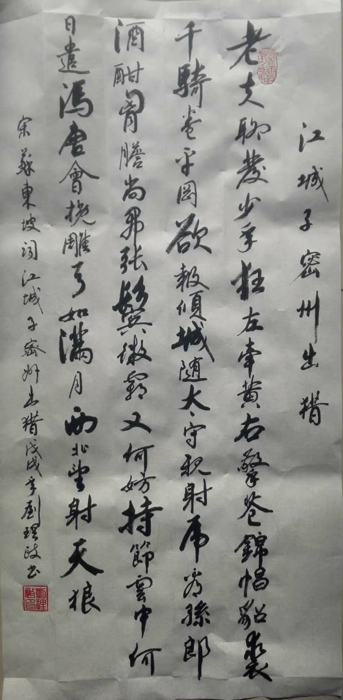 江城子密州出猎
老夫聊发少年狂左牵黄右擎苍錦帽貂裘
千騎卷平冈欲報傾城随太守親射虎看孫郎
酒酣胸膽尚开张鬓微霜又何妨持節雲中何
日遣馮唐會挽雕弓如满月西北望射天狼
宋蘇東坡词江城子密州出猎戊戌年劉理政书